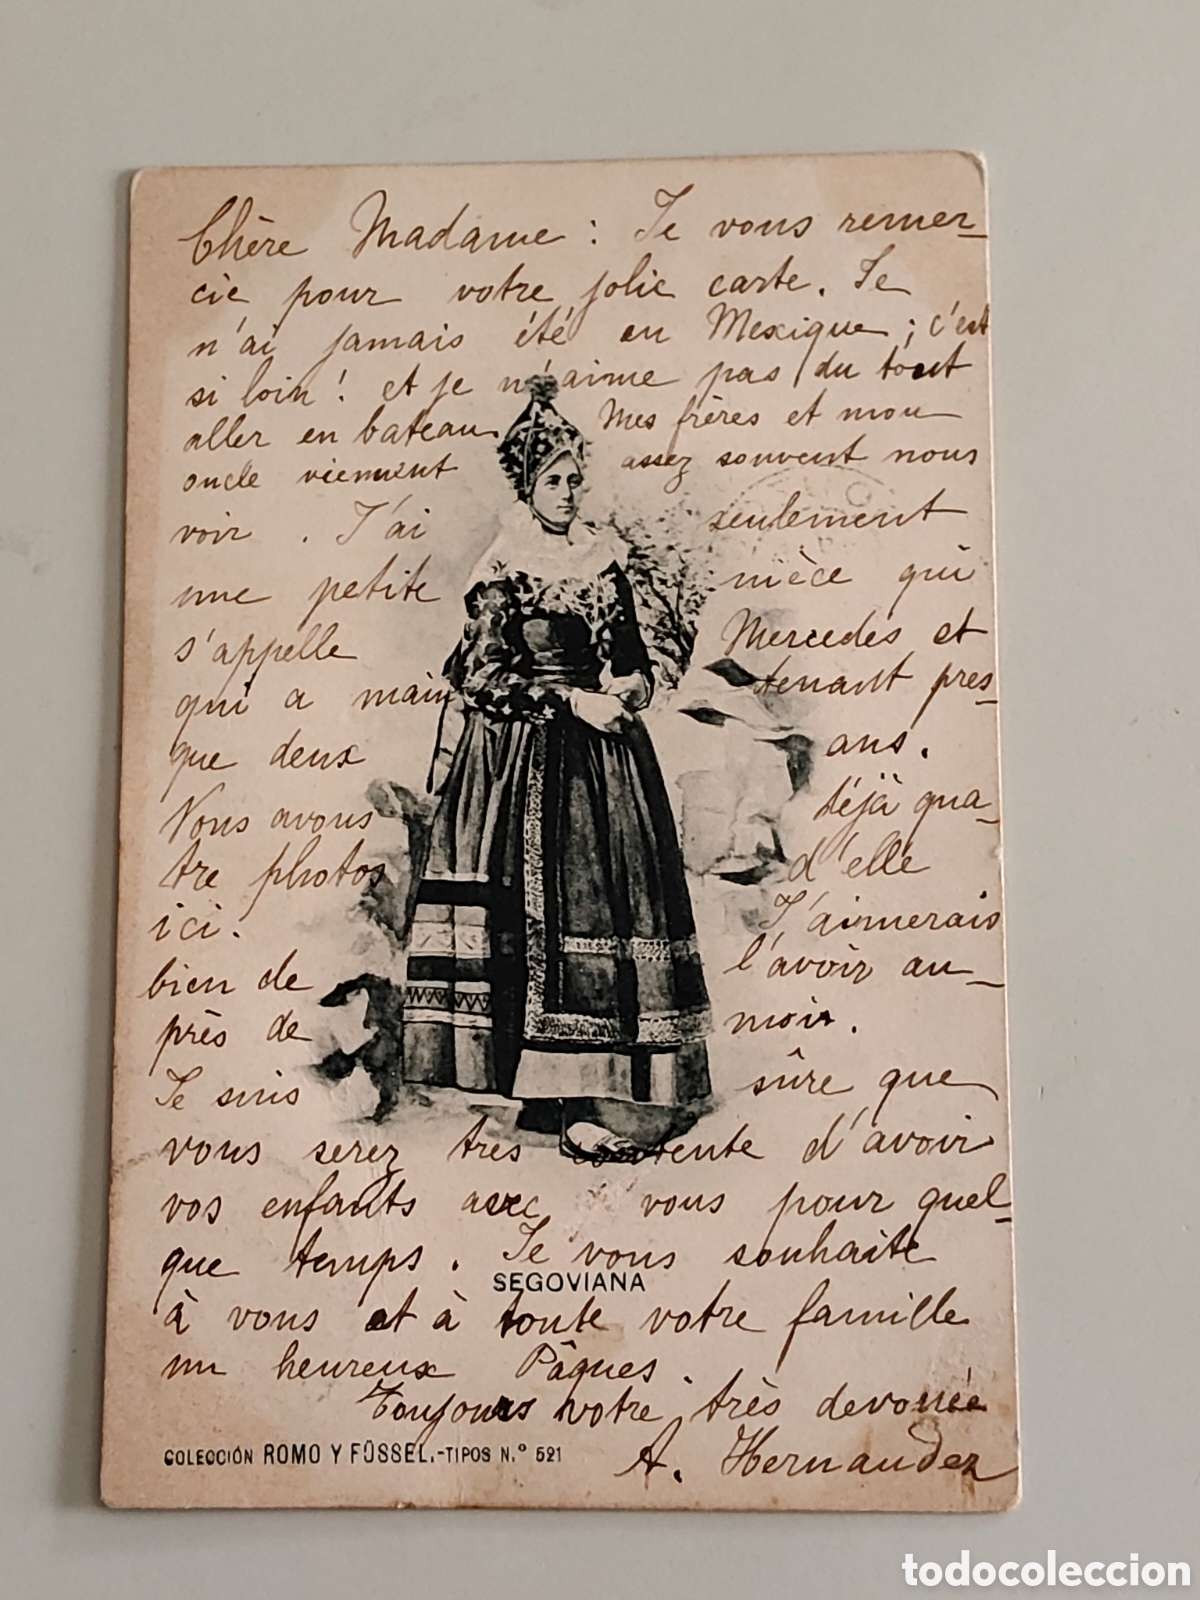 Chère Madame : Je vous remer-
cie pour votre jolie carte. Je
n'ai jamais été en Mexique ; c'est
si loin ! et je n'aime pas du tout
aller en bateau. Mes frères et mon
oncle viennent assez souvent nous
voir . J'ai seulement
une petite nièce qui
s'appelle Mercedes et
qui a maintenant pres-
que deux ans.
Nous avons déjà qua-
tre photos d'elle
ici. J'aimerais
bien de l'avoir au-
près de moi.
Je suis sûre que
vous serez très contente d'avoir
vos enfants avec vous pour quel-
que temps. Je vous souhaite
SEGOVIANA
à vous et à toute votre famille
un heureux Pâques.
Toujours votre très devouée
A. Hernandez
COLECCIÓN ROMO Y FÜSSEL.-TIPOS N.º 521
todocoleccion